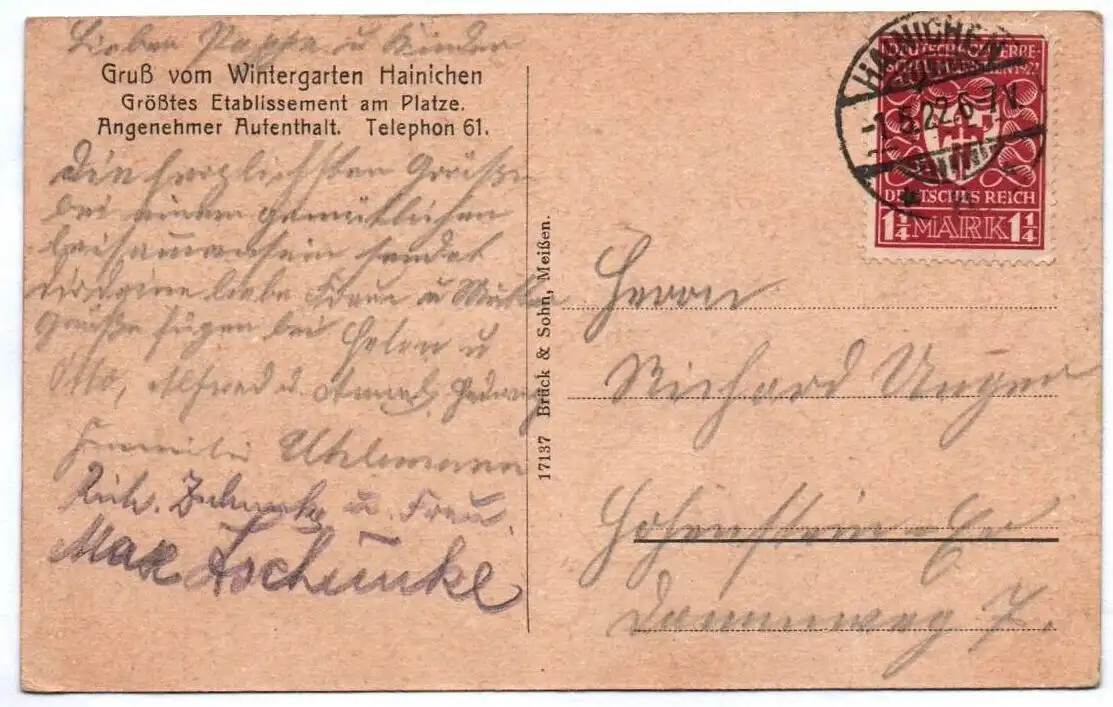 Lieber Pappa u Kinder
Gruß vom Wintergarten Hainichen
Größtes Etablissement am Platze.
Angenehmer Aufenthalt. Telephon 61.
Die herzlichsten Grüße
bei einem gemütlichen
beisammensein sendet
deine liebe Frau u Mutter
Grüße fügen bei Helen u
Otto, Alfred u. Hedwig
Familie Uhlemann
Rich. u. Frau
Max Zschunke
17137 Brück & Sohn, Meißen.
HAINICHEN
-1.5.22.6-7V.
DEUTSCHE GEWERBE-
SCHAU MÜNCHEN 1922
DEUTSCHES REICH
1 1/4 MARK 1 1/4
Herrn
Richard Unger
Hohenstein-Er
Dammweg 7.